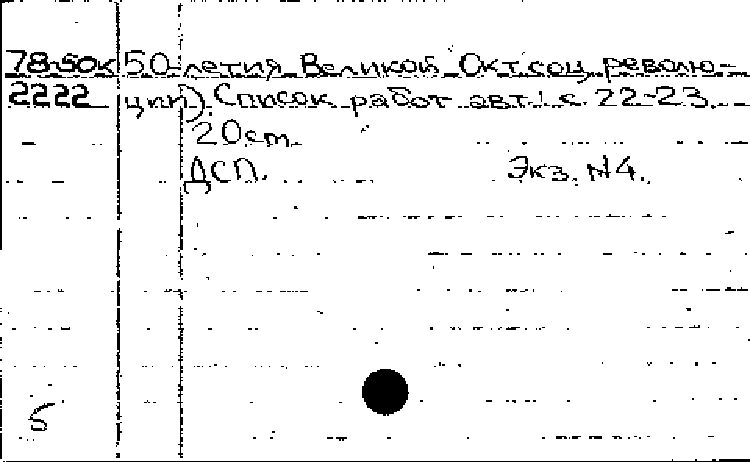 78-50к 50-летия Великой Окт.соц. револю-
2222 ции). Список работ авт.: с. 22-23.
20 cm.
ДСП. Экз. №4.
5